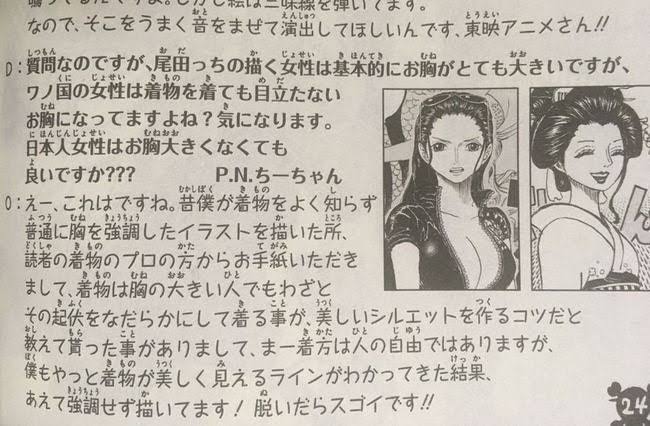 なので、そこをうまく音をまぜて演出してほしいんです、東映アニメさん!!
D:質問なのですが、尾田っちの描く女性は基本的にお胸がとても大きいですが、
ワノ国の女性は着物を着ても目立たない
お胸になってますよね?気になります。
日本人女性はお胸大きくなくても
良いですか??? P.N.ちーちゃん
O:えー、これはですね。昔僕が着物をよく知らず
普通に胸を強調したイラストを描いた所、
読者の着物のプロの方からお手紙いただき
まして、着物は胸の大きい人でもわざと
その起伏をなだらかにして着る事が、美しいシルエットを作るコツだと
教えて貰った事がありまして、まー着方は人の自由ではありますが、
僕もやっと着物が美しく見えるラインがわかってきた結果、
あえて強調せず描いてます!脱いだらスゴイです!!
24